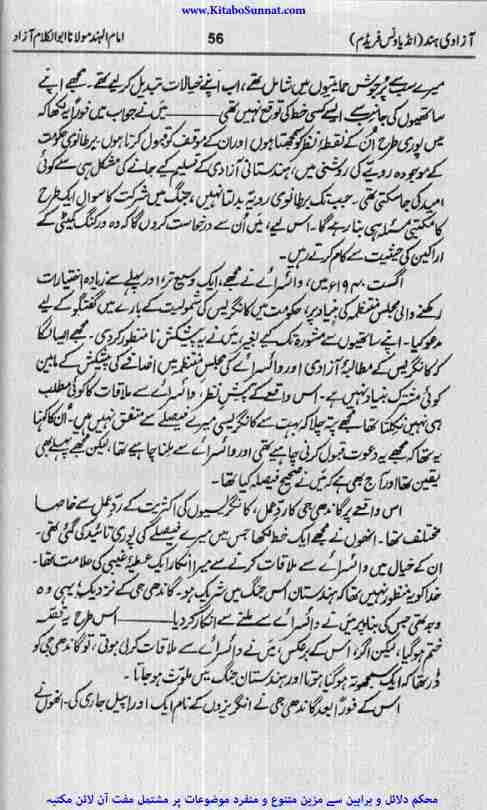 www.KitaboSunnat.com
آزادی ہند (انڈیا ونس فریڈم) 56 امام الہند مولانا ابوالکلام آزاد
میرے سب سے پُرجوش حمایتیوں میں شامل تھے، اب اپنے خیالات تبدیل کر لیے تھے۔ مجھے اپنے
ساتھیوں کی جانب سے ایسے کسی خط کی توقع نہیں تھی ——— میں نے جواب میں فوراً یہ لکھا کہ
میں پوری طرح اُن کے نقطۂ نظر کو سمجھتا ہوں اور ان کے موقف کو قبول کرتا ہوں۔ برطانوی حکومت
کے موجودہ رویّے کی روشنی میں، ہندستانی آزادی کے تسلیم کیے جانے کی مشکل ہی سے کوئی
امید کی جا سکتی تھی۔ جب تک برطانوی رویہ بدلتا نہیں، جنگ میں شرکت کا سوال ایک طرح
کا مکتبی مسئلہ ہی بنا رہے گا۔ اس لیے، میں اُن سے درخواست کروں گا کہ وہ ورکنگ کمیٹی کے
اراکین کی حیثیت سے کام کرتے رہیں۔
اگست ۱۹۴۰ء میں، وائسرائے نے مجھے، ایک وسیع تر اور پہلے سے زیادہ اختیارات
رکھنے والی مجلس منتظمہ کی بنیاد پر، حکومت میں کانگریس کی شمولیت کے بارے میں گفتگو کے لیے
مدعو کیا۔ اپنے ساتھیوں سے مشورہ تک کیے بغیر، میں نے یہ پیشکش نامنظور کر دی۔ مجھے ایسا لگا
کہ کانگریس کے مطالبۂ آزادی اور وائسرائے کی مجلس منتظمہ میں اضافے کی پیشکش کے مابین
کوئی مشترک بنیاد نہیں ہے۔ اس واقعے کے پیش نظر، وائسرائے سے ملاقات کا کوئی مطلب
ہی نہیں نکلتا تھا۔ مجھے پتہ چلا کہ بہت سے کانگریسی میرے فیصلے سے متفق نہیں ہیں۔ اُن کا کہنا
یہ تھا کہ مجھے یہ دعوت قبول کرنی چاہیے تھی اور وائسرائے سے ملنا چاہیے تھا، لیکن مجھے پہلے بھی
یقین تھا اور آج بھی ہے کہ میں نے صحیح فیصلہ کیا تھا۔
اس واقعے پر گاندھی جی کا ردِّ عمل، کانگرسیوں کی اکثریت کے ردِّ عمل سے خاصا
مختلف تھا۔ انھوں نے مجھے ایک خط لکھا جس میں میرے فیصلے کی پوری تائید کی گئی تھی۔
ان کے خیال میں وائسرائے سے ملاقات کرنے سے میرا انکار ایک عطیۂ غیبی کی علامت تھا۔
خدا کو یہ منظور نہیں تھا کہ ہندستان اس جنگ میں شریک ہو۔ گاندھی جی کے نزدیک یہی وہ
وجہ تھی جس کی بنا پر میں نے وائسرائے سے ملنے سے انکار کر دیا ——— اس طرح یہ قصّہ
ختم ہو گیا، لیکن اگر، اس کے برعکس، میں نے وائسرائے سے ملاقات کر لی ہوتی، تو گاندھی جی کو
ڈر تھا کہ ایک سمجھوتہ ہو گیا ہوتا اور ہندستان جنگ میں ملوّث ہو جاتا۔
اس کے فوراً بعد گاندھی جی نے انگریزوں کے نام ایک اور اپیل جاری کی۔ انھوں نے
محکم دلائل و براہین سے مزین متنوع و منفرد موضوعات پر مشتمل مفت آن لائن مکتبہ